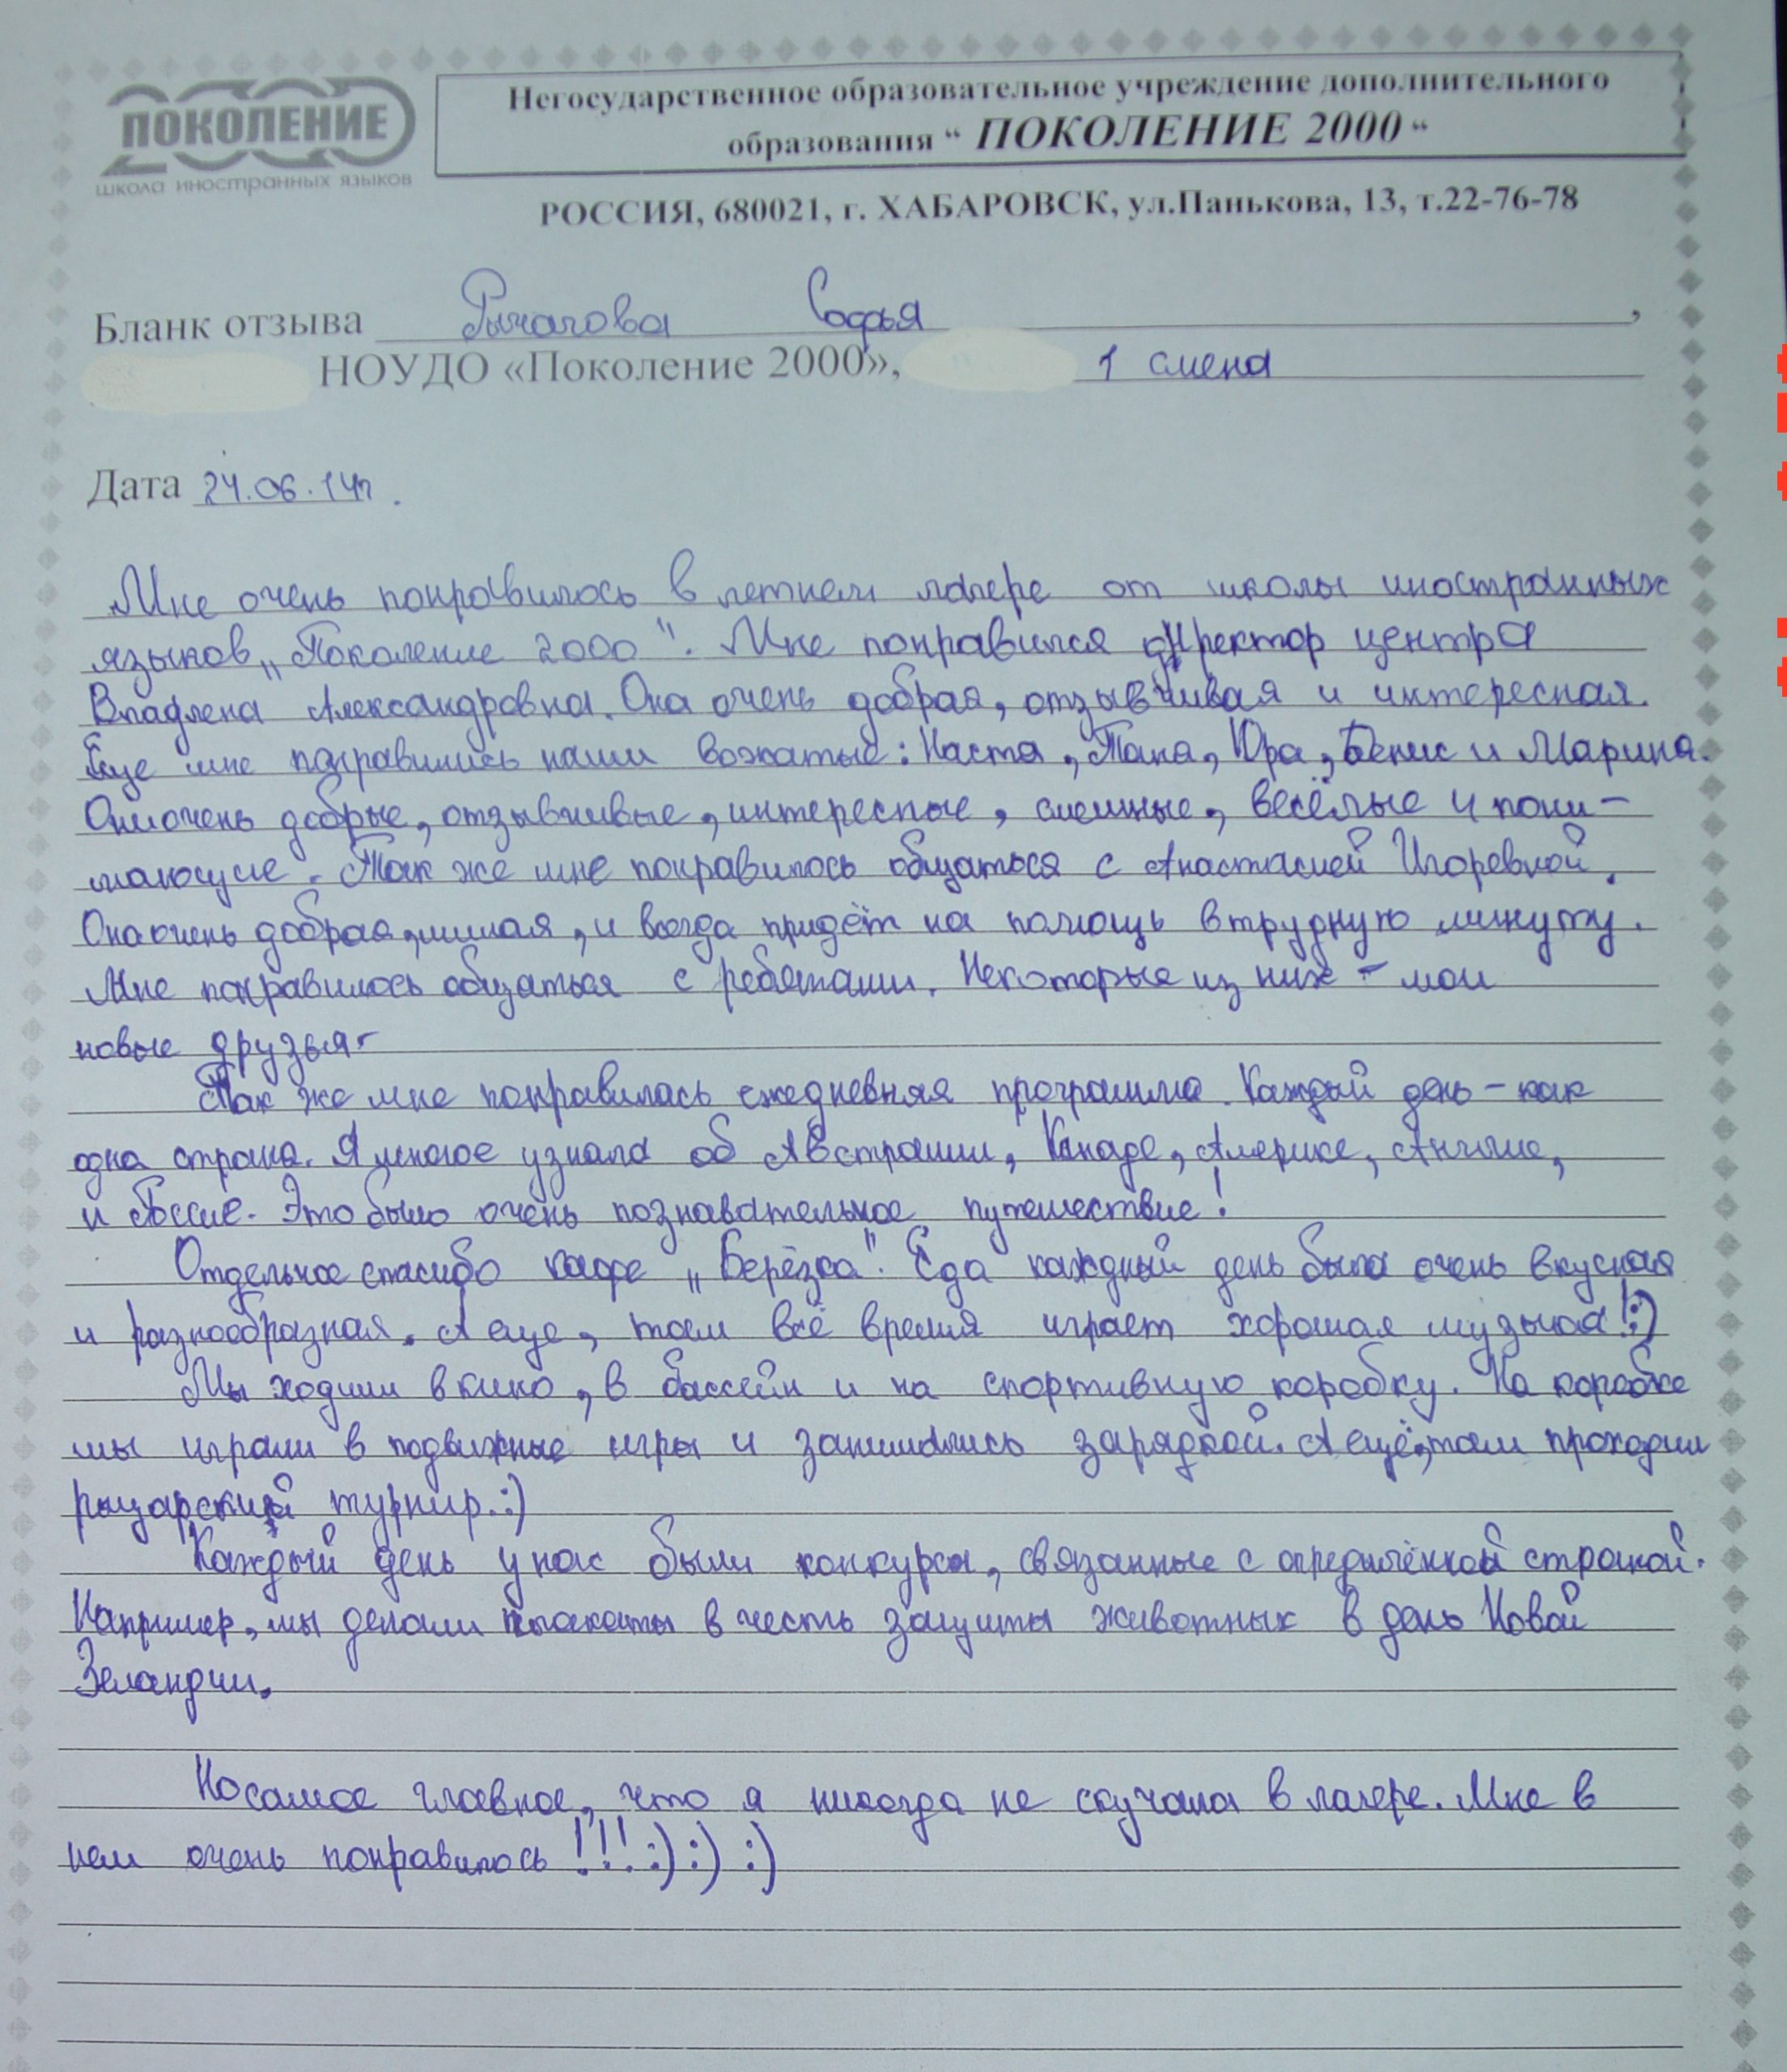 ПОКОЛЕНИЕ
2000
школа иностранных языков
Негосударственное образовательное учреждение дополнительного
образования " ПОКОЛЕНИЕ 2000 "
РОССИЯ, 680021, г. ХАБАРОВСК, ул.Панькова, 13, т.22-76-78
Бланк отзыва Рычагова Софья ,
НОУДО «Поколение 2000», 1 смена
Дата 24.06.14г.
Мне очень понравилось в летнем лагере от школы иностранных
языков „Поколение 2000". Мне понравился директор центра
Владлена Александровна. Она очень добрая, отзывчивая и интересная.
Еще мне понравились наши вожатые: Настя, Таня, Юра, Денис и Марина.
Они очень добрые, отзывчивые, интересные, смешные, весёлые и пони-
мающие. Так же мне понравилось общаться с Анастасией Игоревной.
Она очень добрая, милая, и всегда придёт на помощь в трудную минуту.
Мне понравилось общаться с ребятами. Некоторые из них - мои
новые друзья.
Так же мне понравилась ежедневная программа. Каждый день - как
одна страна. Я многое узнала об Австралии, Канаде, Америке, Англии,
и России. Это было очень познавательное путешествие!
Отдельное спасибо кафе „Берёзка". Еда каждый день была очень вкусная
и разнообразная. А еще, там всё время играет хорошая музыка!:)
Мы ходили в кино, в бассейн и на спортивную коробку. На коробке
мы играли в подвижные игры и занимались зарядкой. А ещё, там проходил
рыцарский турнир.:)
Каждый день у нас были конкурсы, связанные с определённой страной.
Например, мы делали плакаты в честь защиты животных в день Новой
Зеландии.
Но самое главное, что я никогда не скучала в лагере. Мне в
нем очень понравилось!!!:):) :)